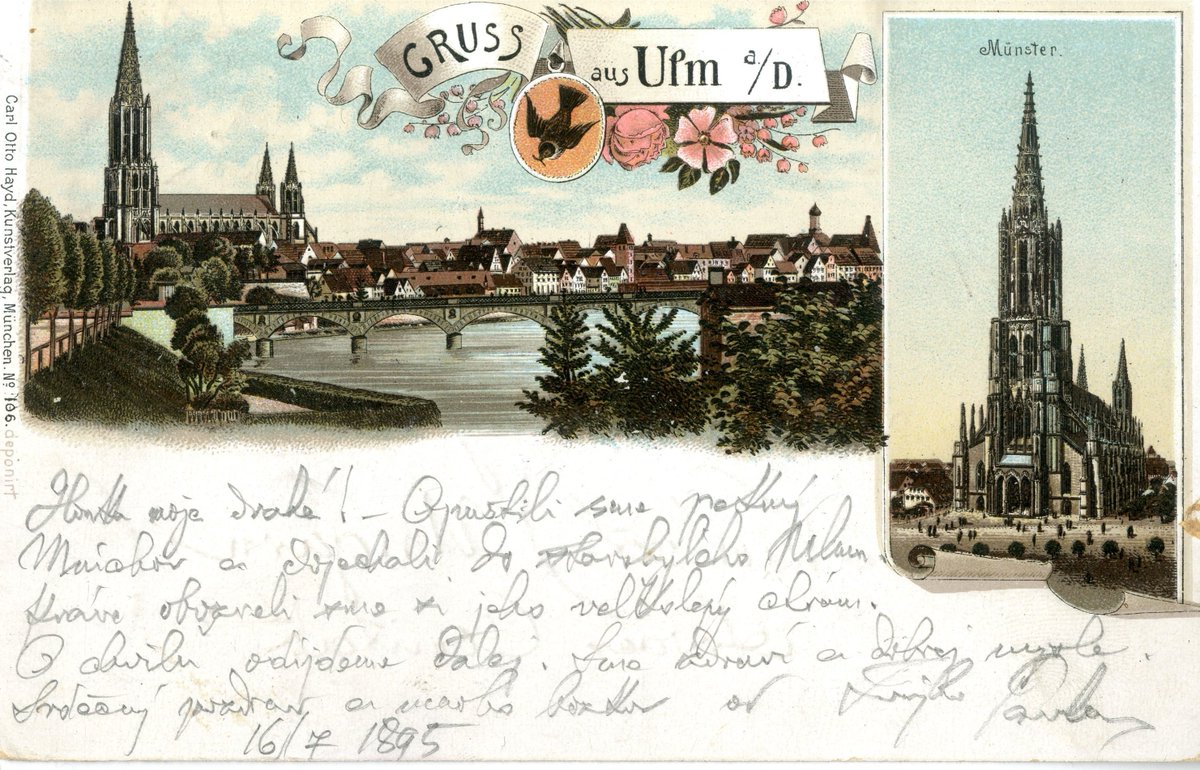 GRUSS
aus Ulm a./D.
Münster.
Carl Otto Hayd, Kunstverlag, München. No 106. deponirt
moje drahé! – Opustili sme pekný
Mníchov a dojechali do starobylého Ulmu.
Práve obzreli sme si jeho velkolepý chrám.
O chvilu odijdeme ďalej. Sme zdraví a dobrej mysle.
Srdečný pozdrav a mnoho bozkov od
16/7 1895